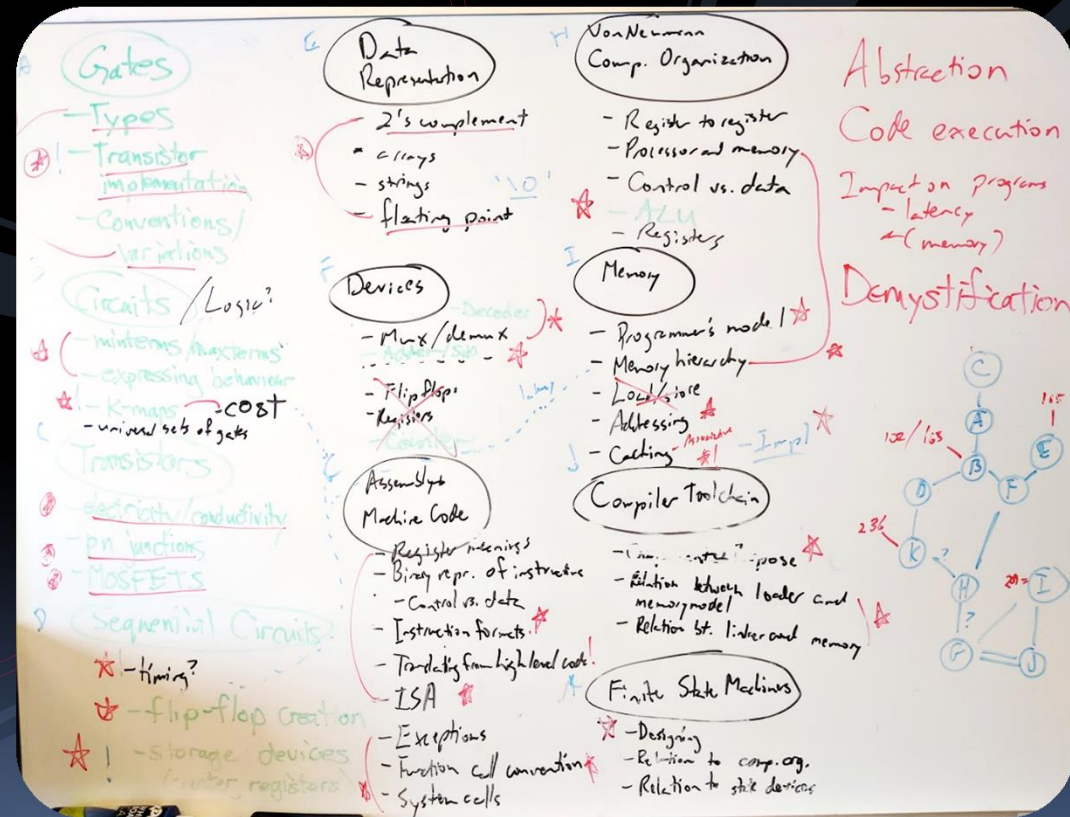 A
Gates
- Types
! - Transistor
implementation
- Conventions/
variations
Circuits /Logic?
- minterms/maxterms
- expressing behaviour
! - K-maps - cost
- universal sets of gates
C
Transistors
- electricity/conductivity
- pn junctions
- MOSFETS
D
Sequential Circuits
- timing?
- flip-flop creation
! - storage devices
registers
E
Data
Representation
- 2's complement
- arrays
- strings '\0'
- floating point
F
Devices
- Decoder
- Mux/demux
- Flip flops
- Registers
- Counter
Assembly &
Machine Code
- Register meanings
- Binary repr. of instructions
- Control vs. data
- Instruction formats
- Translating from high level code!
- ISA
- Exceptions
- Function call convention
- System calls
H
Von Neumann
Comp. Organization
- Register to register
- Processor and memory
- Control vs. data
- ALU
- Registers
I
Memory
- Programmer's model!
- Memory hierarchy
- Load/store
- Addressing
- Caching - Associative - Impl
!
J
Compiler Toolchain
- Relation between loader and
memory model
- Relation bt. linker and memory
Finite State Machines
- Designing
- Relation to comp. org.
- Relation to state devices
Abstraction
Code execution
Impact on programs
- latency
(memory)
Demystification
C
A
165
E
102/165
B
D
F
236
K
?
H
I
?
G
J